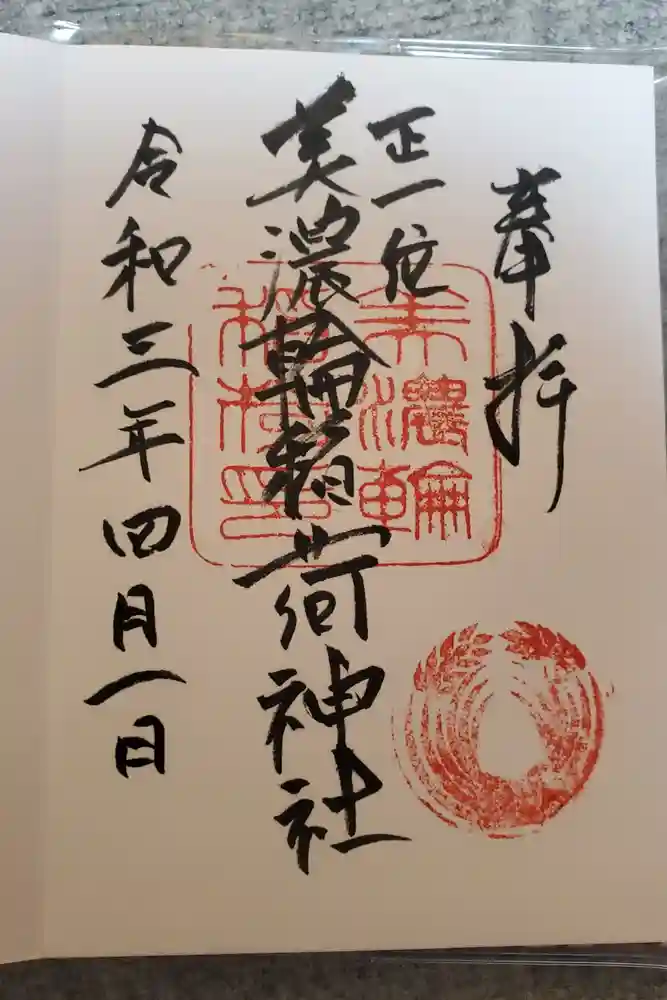 奉拝
正一位
美濃輪稲荷神社
令和三年四月一日
美濃輪
稲荷印